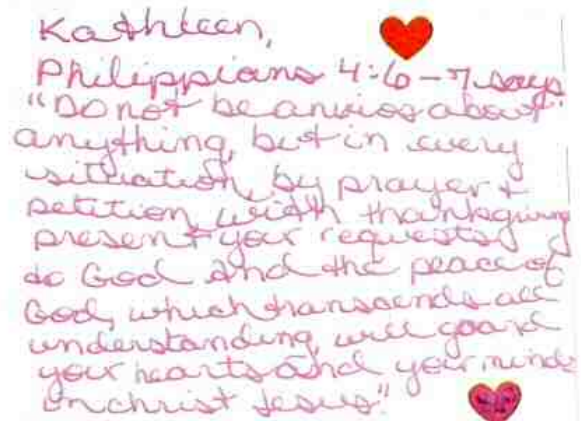 Kathleen,
Philippians 4:6-7 says
"Do not be anxios about"
anything, but in every
situation, by prayer +
petition, width thanksgiving
present your requests
to God and the peace of
God, which transcends all
understanding, will goard
your hearts and your minds
in christ Jesus."